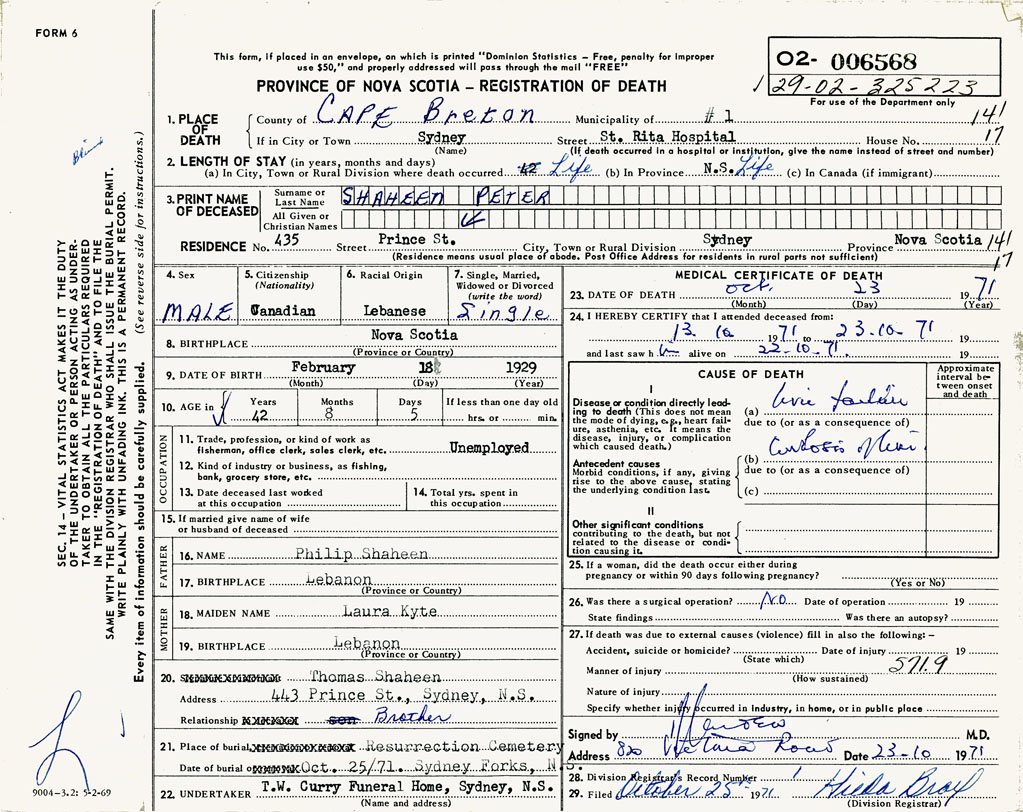 FORM 6
This form, if placed in an envelope, on which is printed "Dominion Statistics – Free, penalty for improper
use $50," and properly addressed will pass through the mail "FREE"
PROVINCE OF NOVA SCOTIA – REGISTRATION OF DEATH
02- 006568
29-02-325223
For use of the Department only
1. PLACE OF DEATH
County of CAPE Breton Municipality of # 1 141
If in City or Town Sydney Street St. Rita Hospital House No. 17
(Name) (If death occurred in a hospital or institution, give the name instead of street and number)
2. LENGTH OF STAY (in years, months and days)
(a) In City, Town or Rural Division where death occurred 42 Life (b) In Province N.S. Life (c) In Canada (if immigrant)
3. PRINT NAME OF DECEASED
Surname or Last Name SHAHEEN PETER
All Given or Christian Names
RESIDENCE No. 435 Street Prince St. City, Town or Rural Division Sydney Province Nova Scotia 141
(Residence means usual place of abode. Post Office Address for residents in rural parts not sufficient) 17
4. Sex
MALE
5. Citizenship
(Nationality)
Canadian
6. Racial Origin
Lebanese
7. Single, Married,
Widowed or Divorced
(write the word)
Single
8. BIRTHPLACE Nova Scotia
(Province or Country)
9. DATE OF BIRTH February 18 1929
(Month) (Day) (Year)
10. AGE in Years Months Days If less than one day old
42 8 5 hrs. or min.
OCCUPATION
11. Trade, profession, or kind of work as
fisherman, office clerk, sales clerk, etc. Unemployed
12. Kind of industry or business, as fishing,
bank, grocery store, etc.
13. Date deceased last worked
at this occupation
14. Total yrs. spent in
this occupation
15. If married give name of wife
or husband of deceased
FATHER
16. NAME Philip Shaheen
17. BIRTHPLACE Lebanon
(Province or Country)
MOTHER
18. MAIDEN NAME Laura Kyte
19. BIRTHPLACE Lebanon
(Province or Country)
20. Thomas Shaheen
Address 443 Prince St., Sydney, N.S.
Relationship son Brother
21. Place of burial, Resurrection Cemetery
Date of burial Oct. 25/71. Sydney Forks, N.S.
22. UNDERTAKER T.W. Curry Funeral Home, Sydney, N.S.
(Name and address)
MEDICAL CERTIFICATE OF DEATH
23. DATE OF DEATH Oct. 23 1971
(Month) (Day) (Year)
24. I HEREBY CERTIFY that I attended deceased from:
13. 10 1971 to 23-10-71 19
and last saw h im alive on 22-10-71. 19
CAUSE OF DEATH
Approximate
interval be-
tween onset
and death
I
Disease or condition directly lead-
ing to death (This does not mean
the mode of dying, e.g., heart fail-
ure, asthenia, etc. It means the
disease, injury, or complication
which caused death.)
(a) liver failure
due to (or as a consequence of)
(b) Cirrhosis of liver
due to (or as a consequence of)
(c)
Antecedent causes
Morbid conditions, if any, giving
rise to the above cause, stating
the underlying condition last.
II
Other significant conditions
contributing to the death, but not
related to the disease or condi-
tion causing it.
25. If a woman, did the death occur either during
pregnancy or within 90 days following pregnancy?
(Yes or No)
26. Was there a surgical operation? NO Date of operation 19
State findings Was there an autopsy?
27. If death was due to external causes (violence) fill in also the following: –
Accident, suicide or homicide? Date of injury 19
(State which)
Manner of injury 571.9
(How sustained)
Nature of injury
Specify whether injury occurred in industry, in home, or in public place
Signed by M.D.
Address 820 Victoria Road Date 23-10 1971
28. Division Registrar's Record Number
29. Filed October 25th 1971
(Division Registrar)
SEC. 14 – VITAL STATISTICS ACT MAKES IT THE DUTY
OF THE UNDERTAKER OR PERSON ACTING AS UNDER-
TAKER TO OBTAIN ALL THE PARTICULARS REQUIRED
IN THE "REGISTRATION OF DEATH" AND TO FILE THE
SAME WITH THE DIVISION REGISTRAR WHO SHALL ISSUE THE BURIAL PERMIT.
WRITE PLAINLY WITH UNFADING INK. THIS IS A PERMANENT RECORD.
Every item of information should be carefully supplied. (See reverse side for instructions.)
9004-3.2: 5-2-69